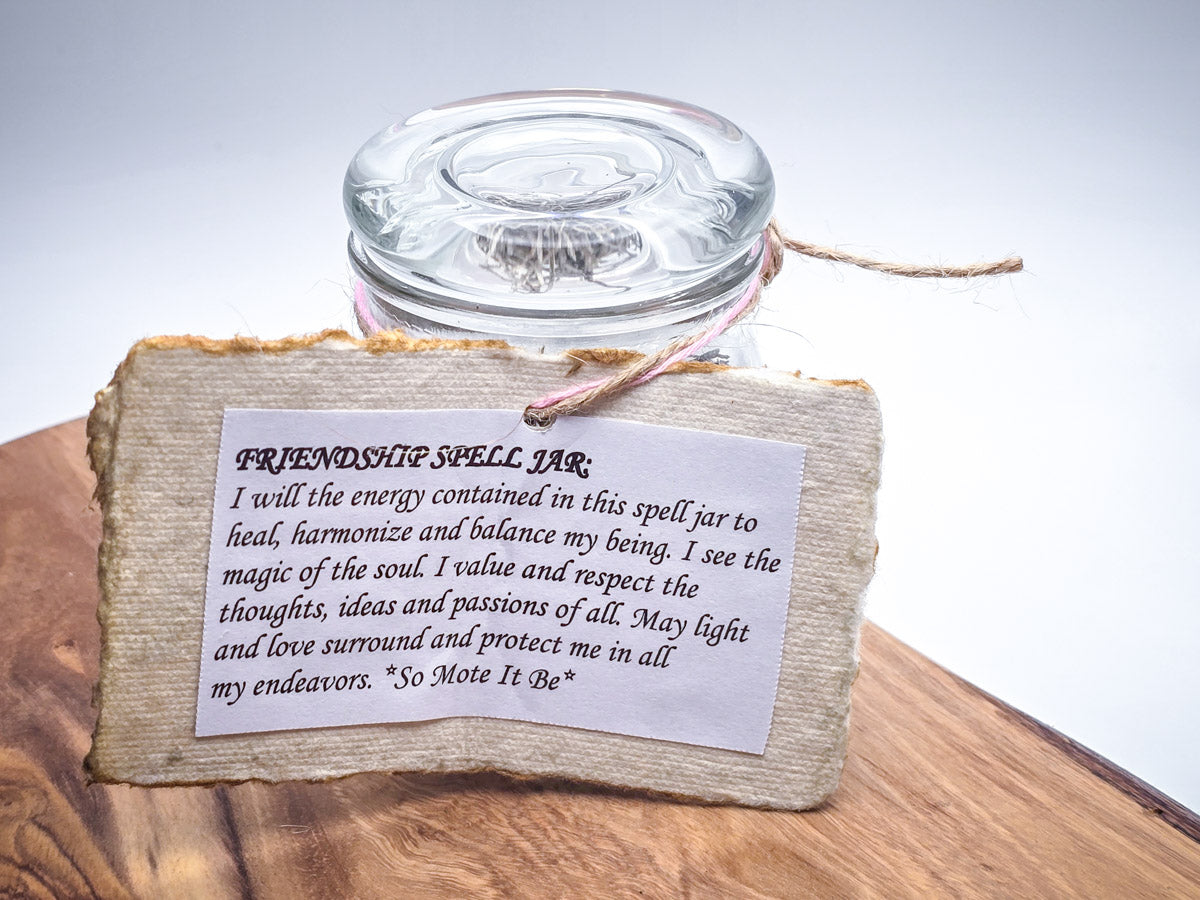 FRIENDSHIP SPELL JAR:
I will the energy contained in this spell jar to
heal, harmonize and balance my being. I see the
magic of the soul. I value and respect the
thoughts, ideas and passions of all. May light
and love surround and protect me in all
my endeavors. *So Mote It Be*